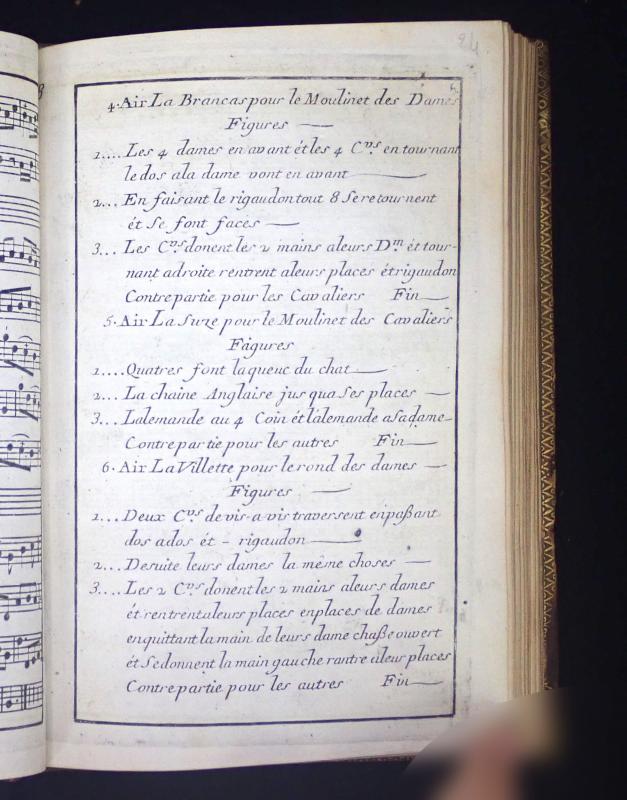 24
4. Air La Brancas pour le Moulinet des Dames
Figures
1.... Les 4 dames en avant ét les 4 C.vrs en tournant
le dos a la dame vont en avant
2... En faisant le rigaudon tout 8 Se retournent
ét Se font faces
3... Les C.vrs donent les 2 mains a leurs D.m ét tour-
nant a droite rentrent a leurs places ét rigaudon
Contre partie pour les Cavaliers Fin
5. Air La Suze pour le Moulinet des Cavaliers
Figures
1.... Quatres font la queuc du chat
2... La chaine Anglaise jus qua Ses places
3... Lalemande au 4 Coin ét lalemande a Sa dame
Contre partie pour les autres Fin
6. Air La Villette pour le rond des dames
Figures
1... Deux C.vrs de vis-a-vis traversent en paßant
dos a dos ét - rigaudon
2... Desuite leurs dames la même choses
3... Les 2 C.vrs donent les 2 mains a leurs dames
ét rentrent a leurs places en places de dames
en quittant la main de leurs dame chaße ouvert
ét Se donnent la main gauche rantre a leur places
Contre partie pour les autres Fin